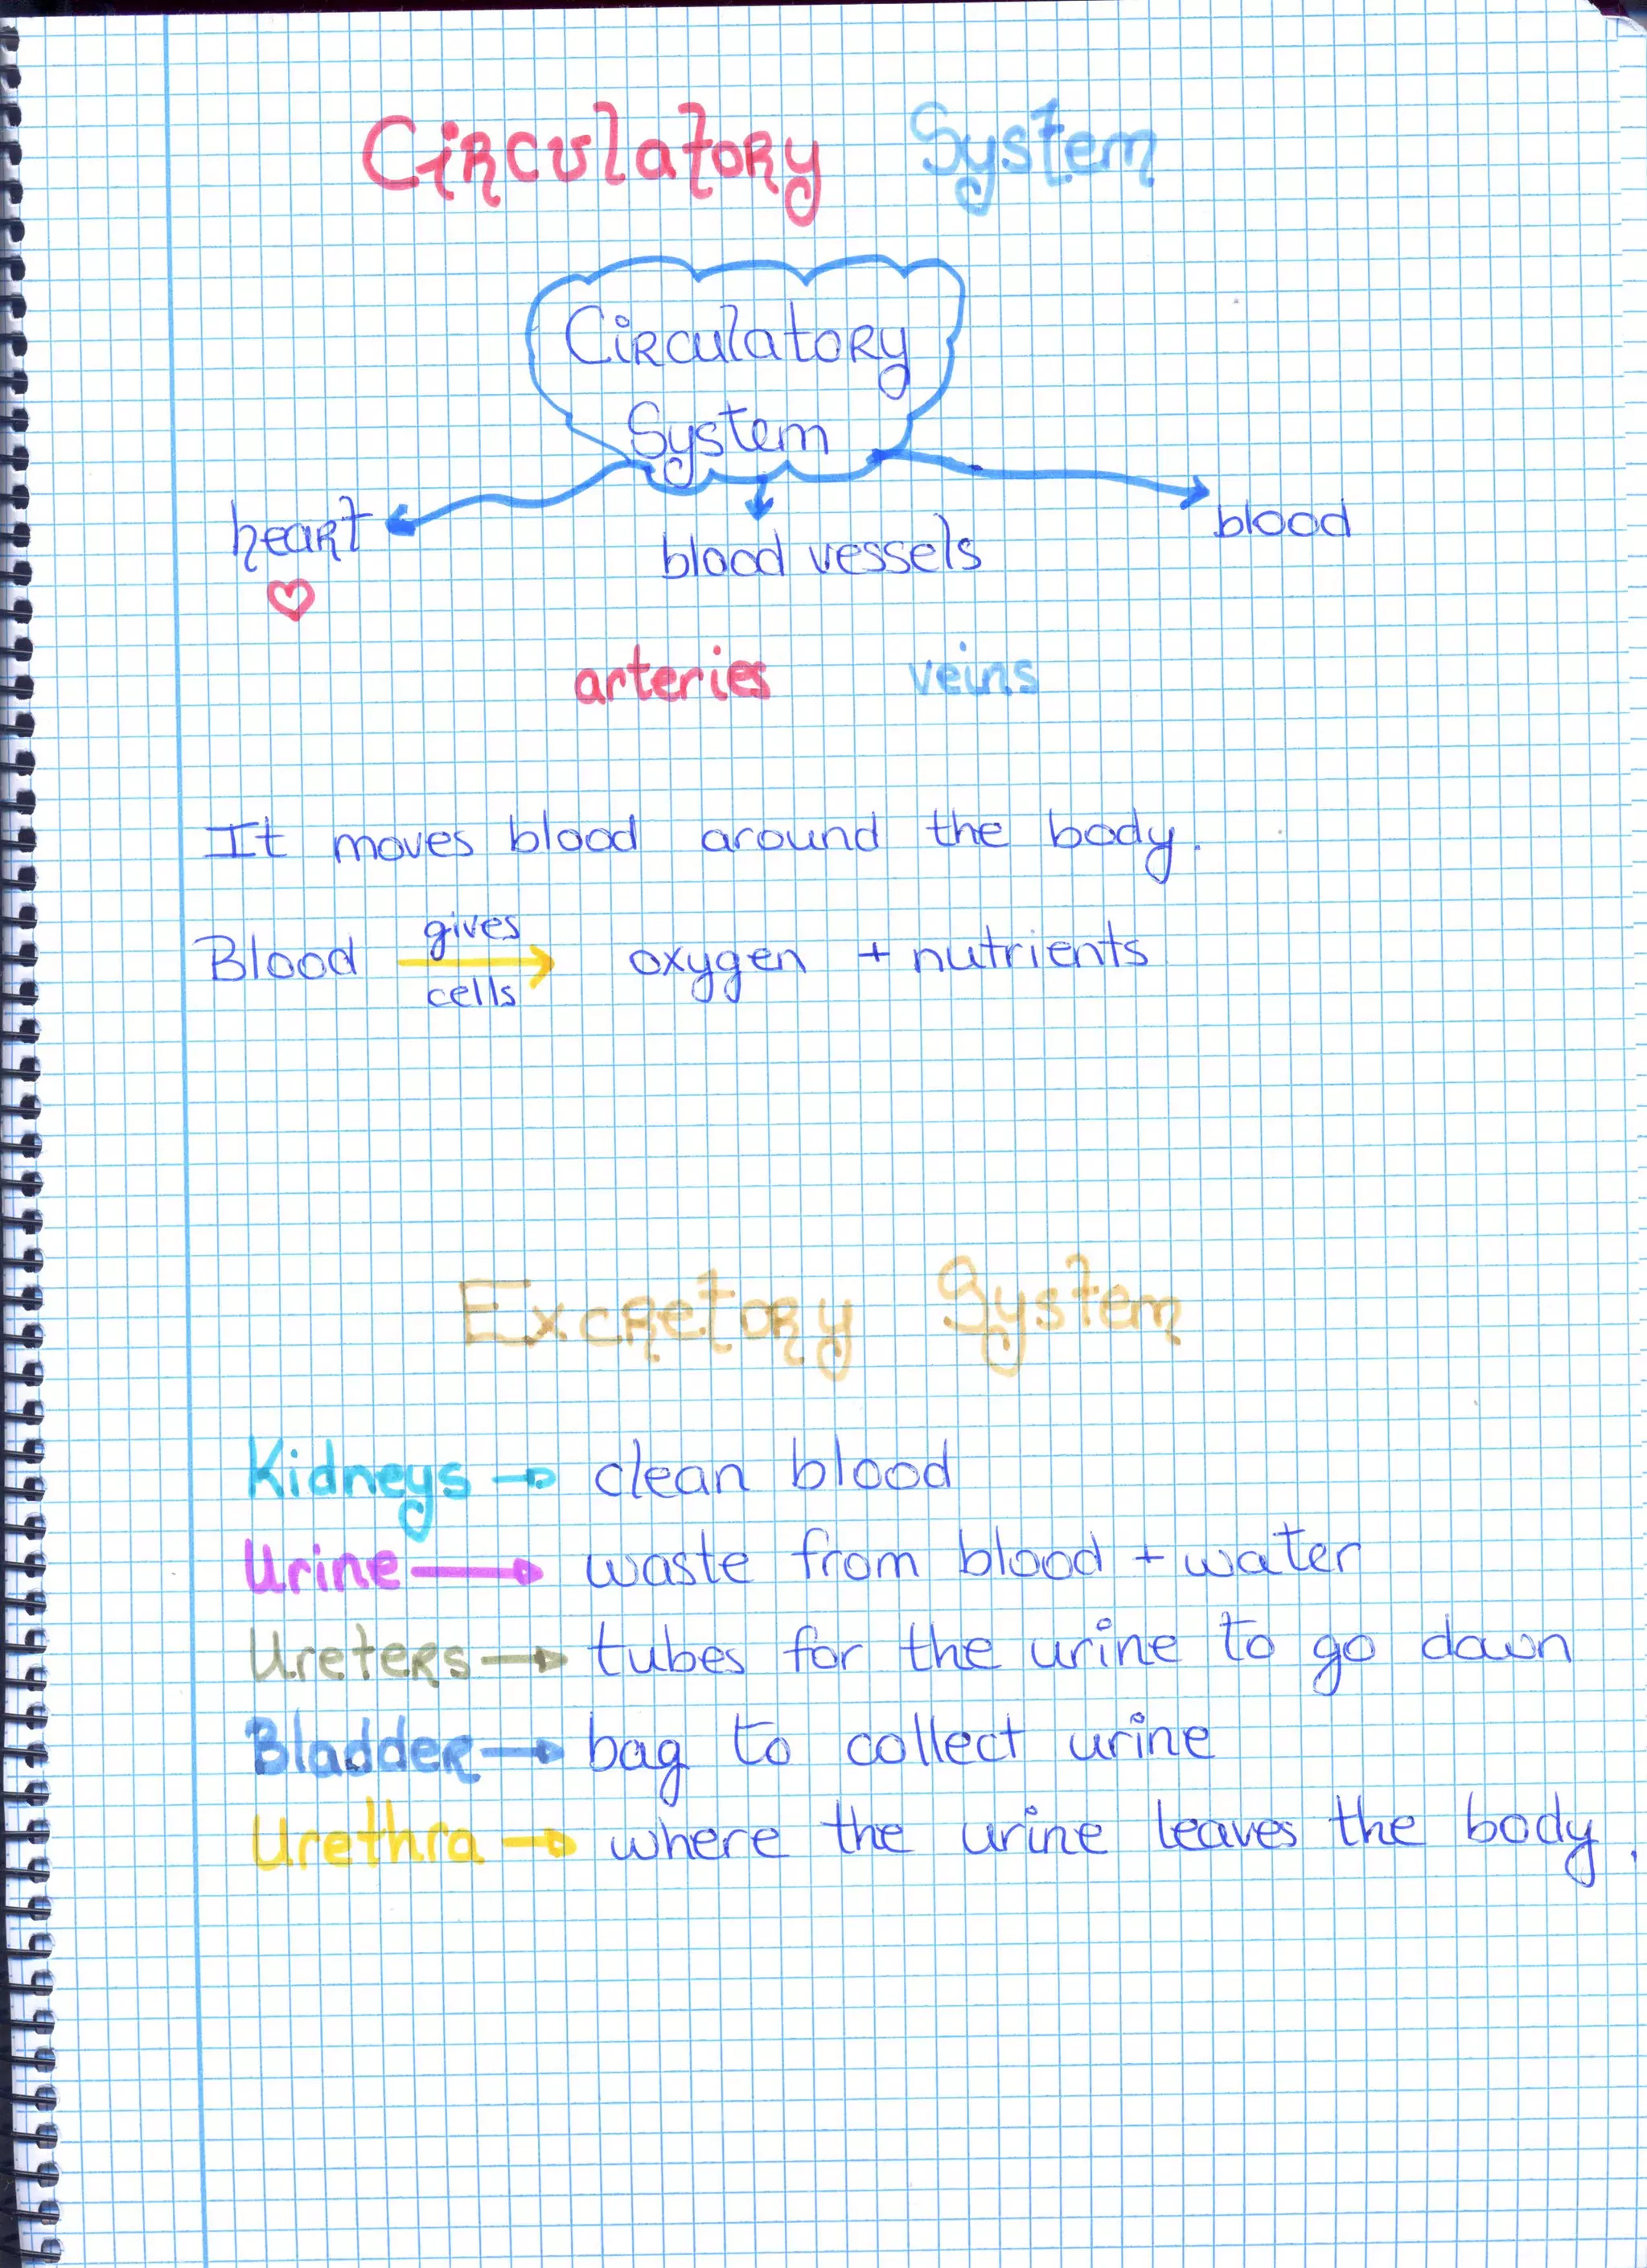 Circulatory System
Circulatory
System
heart
blood vessels
blood
arteries veins
It moves blood around the body.
gives
Blood → oxygen + nutrients
cells
Excretory System
Kidneys → clean blood
Urine → waste from blood + water
Ureters → tubes for the urine to go down
Bladder → bag to collect urine
Urethra → where the urine leaves the body.